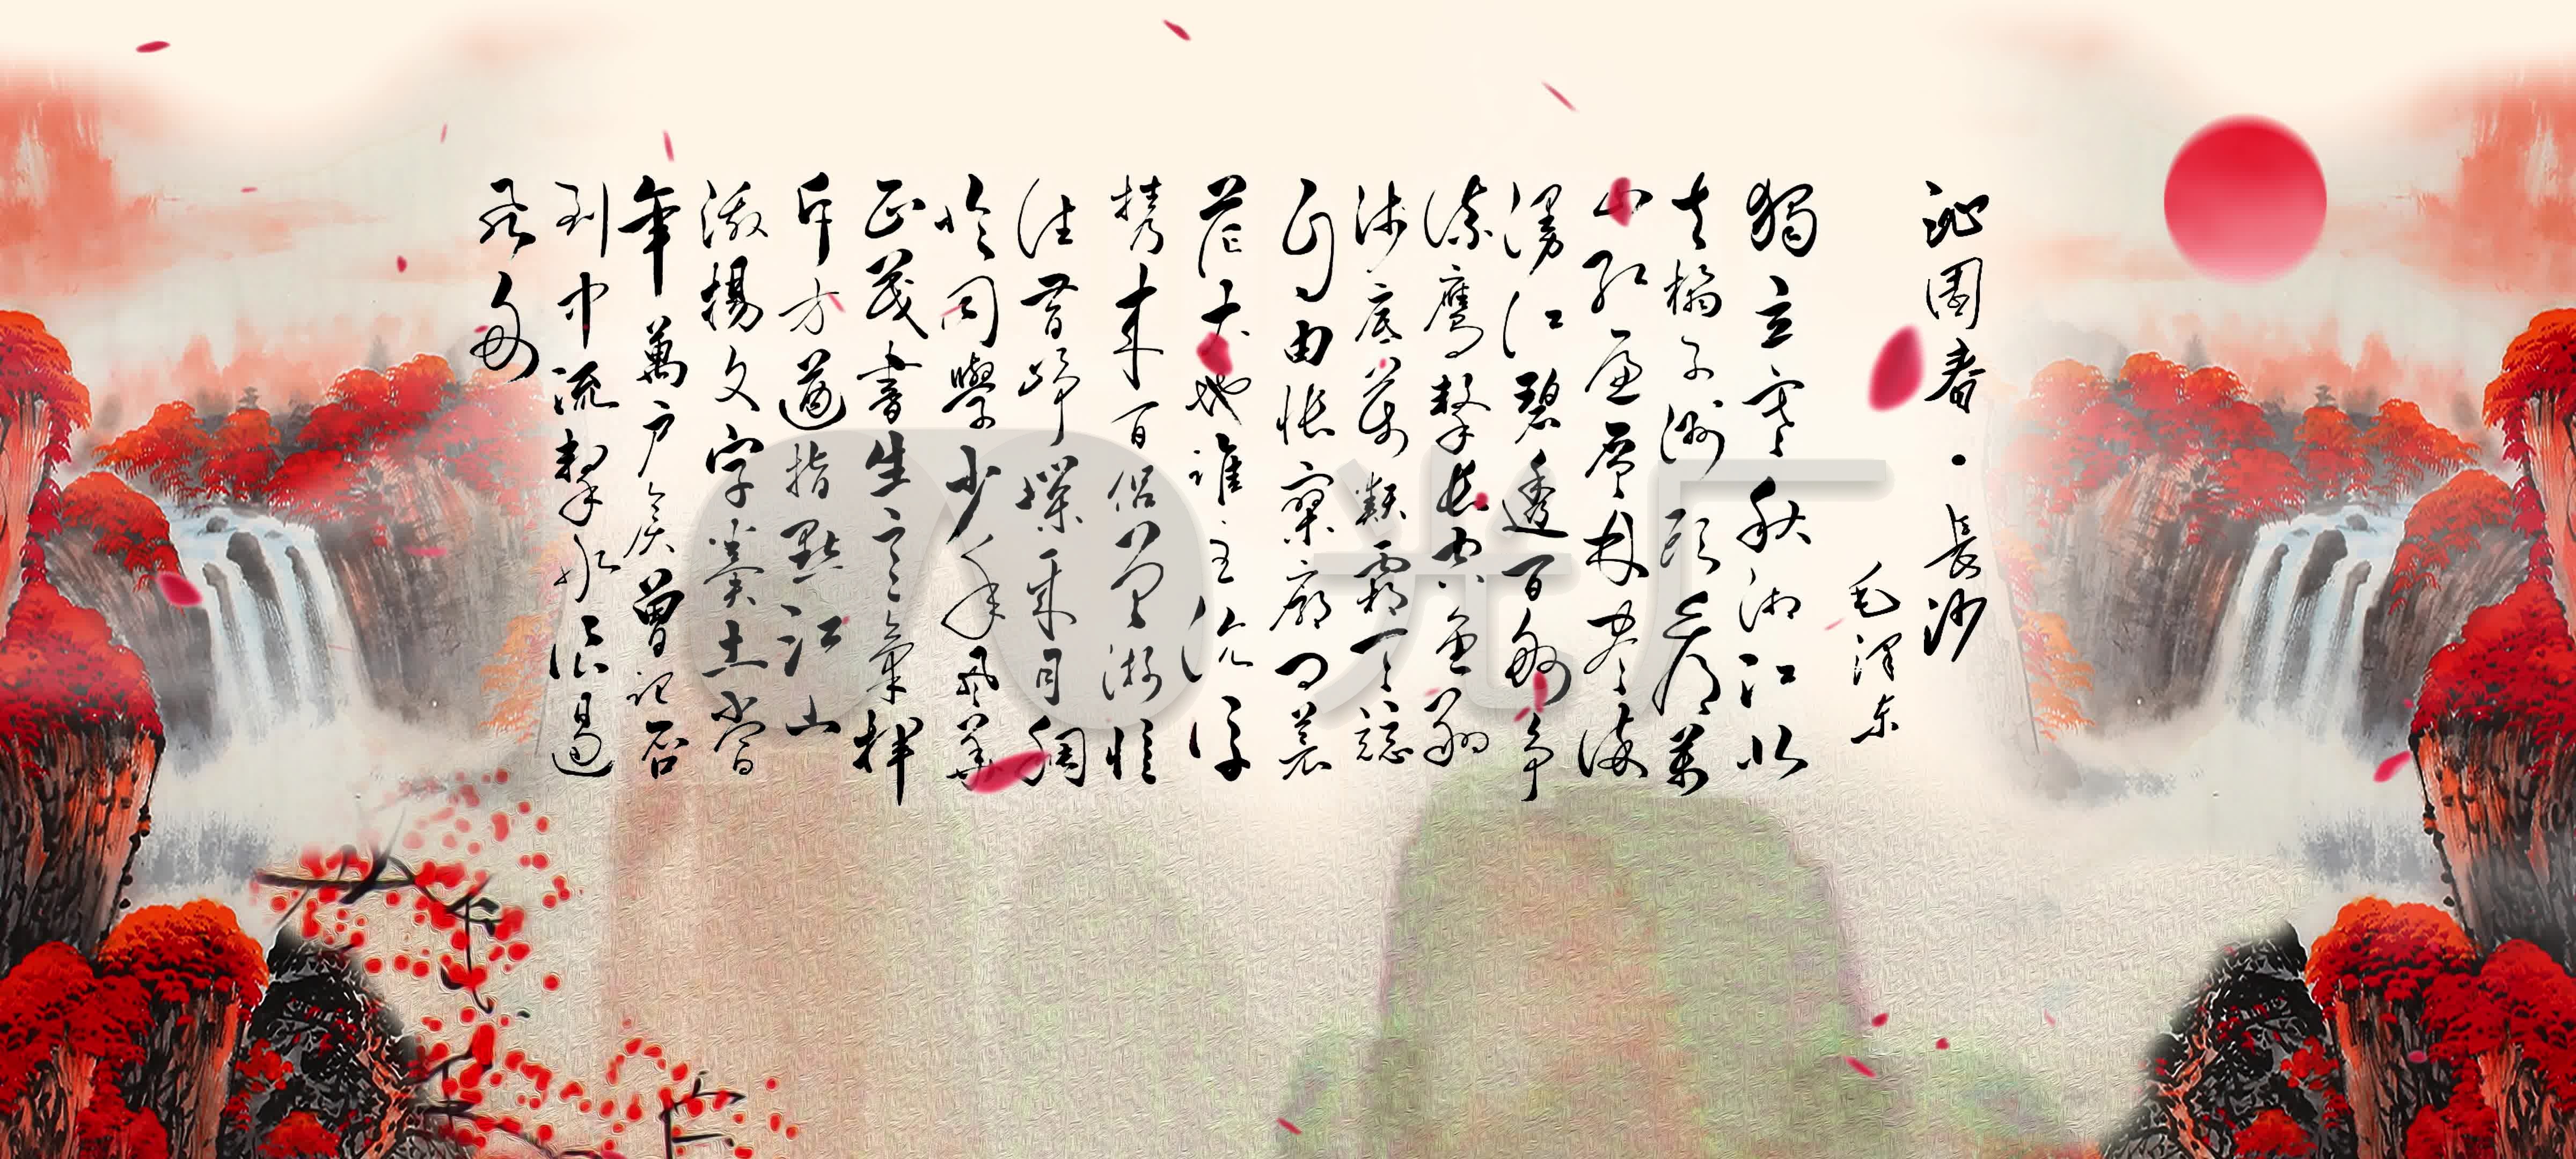 沁園春·長沙
毛澤东
獨立寒秋湘江北
去橘子洲头看萬
山红遍层林尽染
漫江碧透百舸争
流鹰擊长空鱼翔
浅底萬類霜天競
自由怅寥廓问苍
茫大地谁主沉浮
携来百侣曾游忆
往昔峥嵘歲月稠
恰同學少年风華
正茂書生意氣挥
斥方遒指點江山
激揚文字糞土當
年萬户侯曾记否
到中流擊水浪遏
飛舟
光厂